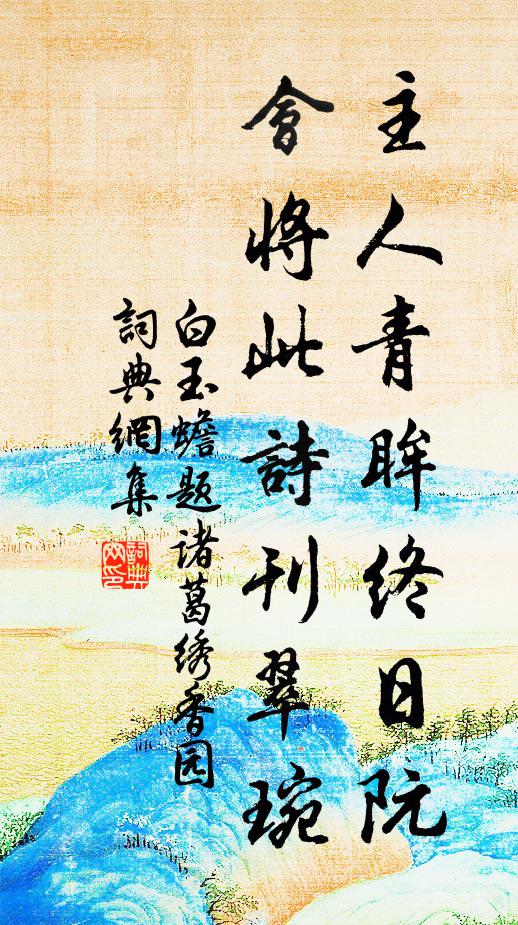 主人青眸终日阮
會将此詩刊翠琬
白玉蟾题诸葛绣香园
詞典網集
詞典网印